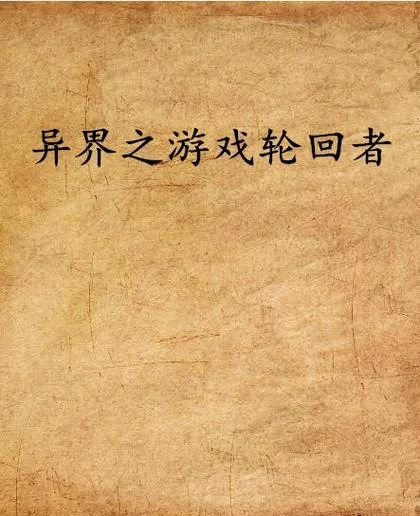 异界之游戏轮回者